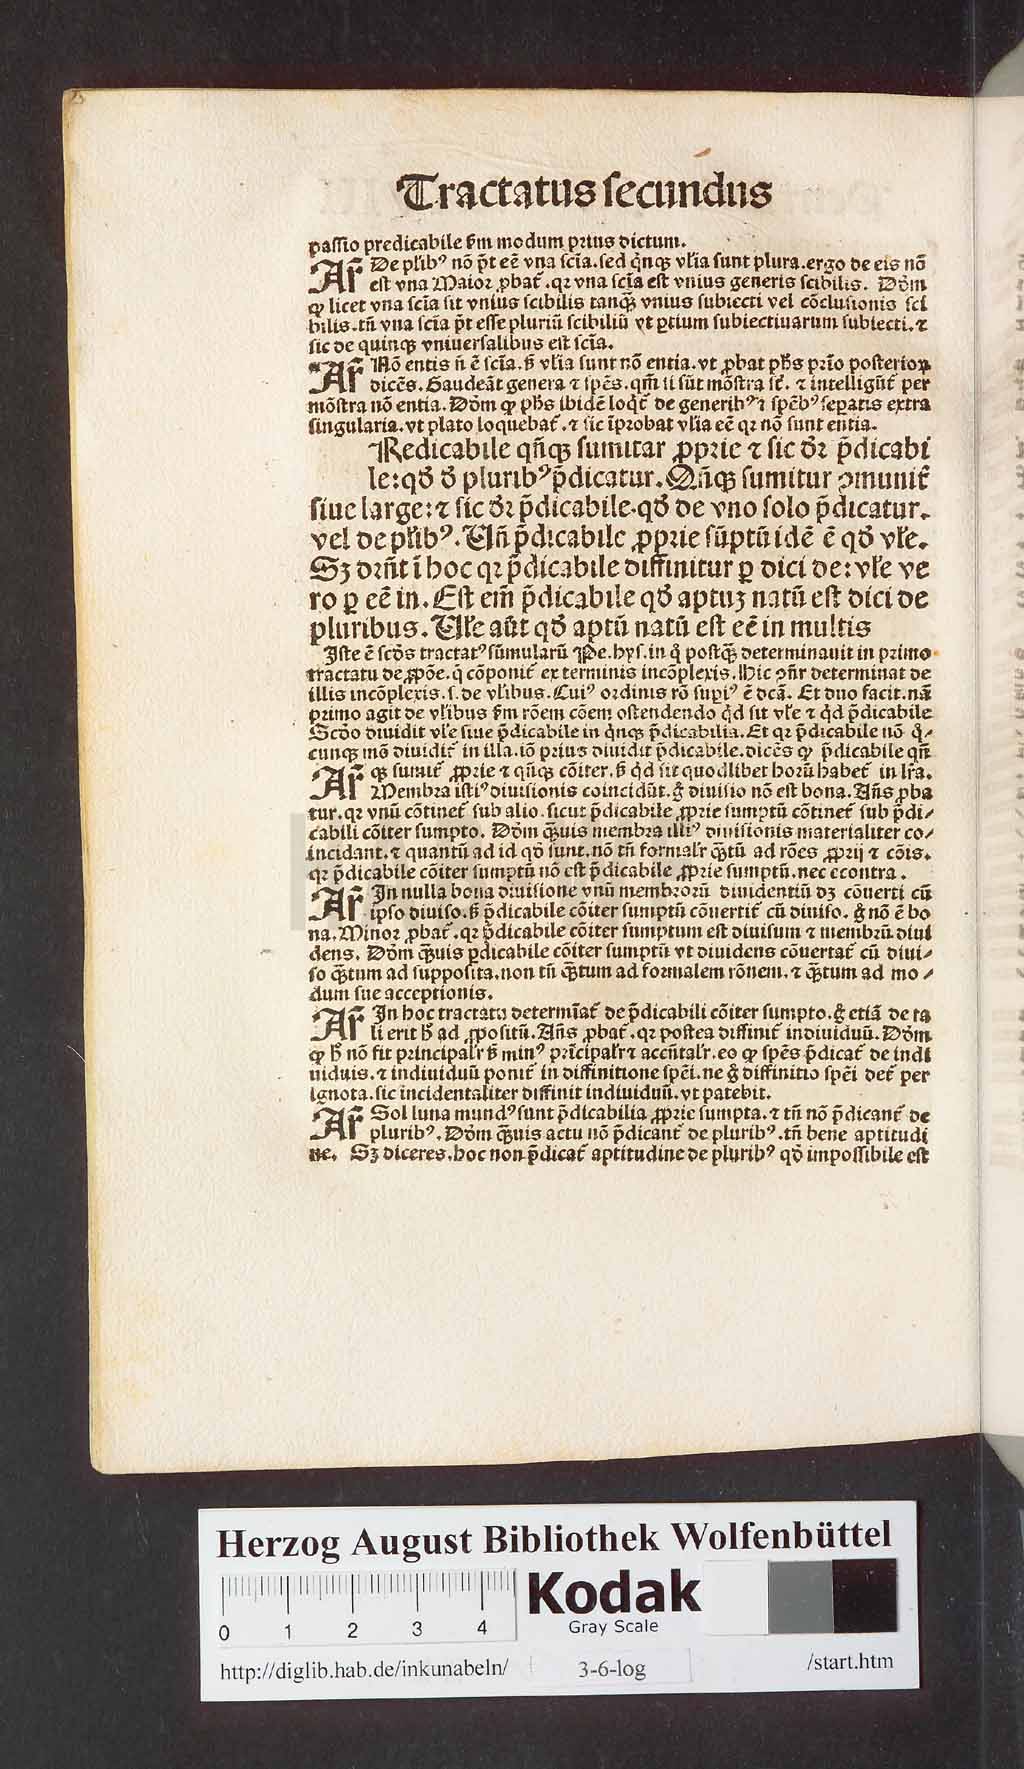 Tractatus secundus
passio predicabile fm modum prius dictum.
Ar̃ De plib⁹ nō pt eē vna scīa.sed qnqꝫ vlia sunt plura.ergo de eis nō
est vna Maior ꝓbat̃.qr vna scīa est vnius generis scibilis. Dōm
ꝙ licet vna scīa sit vnius scibilis tanqꝫ vnius subiecti vel cōclusionis sci
bilis.tñ vna scīa pt esse pluriū scibiliū vt ꝑtium subiectiuarum subiecti.⁊
sic de quinqꝫ vniuersalibus est scīa.
Ar̃ Nō entis ñ ē scīa.ß vlia sunt nō entia.vt ꝓbat phs prīo posterioꝝ
dicēs.Gaudeāt genera ⁊ spēs.qm̄ si sūt mōstra st̃. ⁊ intelligūt̃ per
mōstra nō entia.Dōm ꝙ phs ibidē loqt̃ de generib⁹ ⁊ spēb⁹ separatis extra
singularia.vt plato loquebat̃.⁊ sic īprobat vlia eē qr nō sunt entia.
Redicabile qñqꝫ sumitar ꝓprie ⁊ sic dr p̄dicabi
le:qd̓ d̓ plurib⁹ p̄dicatur.Qñqꝫ sumitur ꝯmunit̃
siue large:⁊ sic dr p̄dicabile.qd̓ de vno solo p̄dicatur.
vel de plib⁹.Uñ p̄dicabile ꝓprie sūptū idē ē qd̓ vle.
Sꝫ drñt ī hoc qr p̄dicabile diffinitur ꝑ dici de:vle ve
ro ꝑ eē in.Est em̄ p̄dicabile qd̓ aptuꝫ natū est dici de
pluribus.Ule aūt qd̓ aptū natū est eē in multis
Iste ē scōs tractat⁹ sūmularū Pe.hys.in q̓ postqꝫ determinauit in primo
tractatu de ꝓpōe.q̓ cōponit̃ ex terminis incōplexis.Hic ꝯñr determinat de
illis incōplexis.s.de vlibus.Cui⁹ ordinis rō supi⁹ ē dcā. Et duo facit.nā
primo agit de vlibus fm rōem cōem ostendendo qd sit vle ⁊ qd p̄dicabile
Scōo diuidit vle siue p̄dicabile in qnqꝫ p̄dicabilia.Et qr p̄dicabile nō q̓-
cunqꝫ mō diuidit̃ in illa.iō prius diuidit p̄dicabile.dicēs ꝙ p̄dicabile qñ
qꝫ sumit̃ ꝓprie ⁊ qñqꝫ cōiter.ß qd sit quodlibet horū habet̃ in lr̃a.
Ar̃ Membra isti⁹ diuisionis coincidūt.g̓ diuisio nō est bona.Añs ꝓba
tur.qr vnū cōtinet̃ sub alio.sicut p̄dicabile ꝓprie sumptū cōtinet̃ sub p̄di/
cabili cōiter sumpto. Dōm qꝫuis membra illi⁹ diuisionis materialiter co/
incidant.⁊ quantū ad id qd̓ sunt.nō tñ formalr qꝫtū ad rōes ꝓprij ⁊ cōis.
qr p̄dicabile cōiter sumptū nō est p̄dicabile ꝓprie sumptū.nec econtra.
Ar̃ In nulla bona diuisione vnū membrorū diuidentiū dꝫ cōuerti cū
ipso diuiso.ß p̄dicabile cōiter sumptū cōuertit̃ cū diuiso.g̓ nō ē bo
na.Minor ꝓbat̃.qr p̄dicabile cōiter sumptum est diuisum ⁊ membrū diui
dens. Dōm qꝫuis p̄dicabile cōiter sumptū vt diuidens cōuertat̃ cū diui/
so qꝫtum ad supposita.non tñ qꝫtum ad formalem rōnem.⁊ qꝫtum ad mo/
dum sue acceptionis.
Ar̃ In hoc tractatu determīat̃ de p̄dicabili cōiter sumpto.g̓ etiā de ta
li erit ħ ad ꝓpositū.Añs ꝓbat̃.qr postea diffinit̃ indiuiduū.Dōm
ꝙ ħ nō fit principalr ß min⁹ prīcipalr ⁊ accēntalr.eo ꝙ spēs p̄dicat̃ de indi
uiduis.⁊ indiuiduū ponit̃ in diffinitione spēi.ne g̓ diffinitio spēi det̃ per
ignota.sic incidentaliter diffinit indiuiduū.vt patebit.
Ar̃ Sol luna mund⁹ sunt p̄dicabilia ꝓprie sumpta.⁊ tñ nō p̄dicant̃ de
plurib⁹. Dōm qꝫuis actu nō p̄dicant̃ de plurib⁹.tñ bene aptitudi
ne. Sꝫ diceres.hoc non p̄dicat̃ aptitudine de plurib⁹ qd̓ impossibile est
Herzog August Bibliothek Wolfenbüttel
0 1 2 3 4
Kodak
Gray Scale
http://diglib.hab.de/inkunabeln/ 3-6-log /start.htm